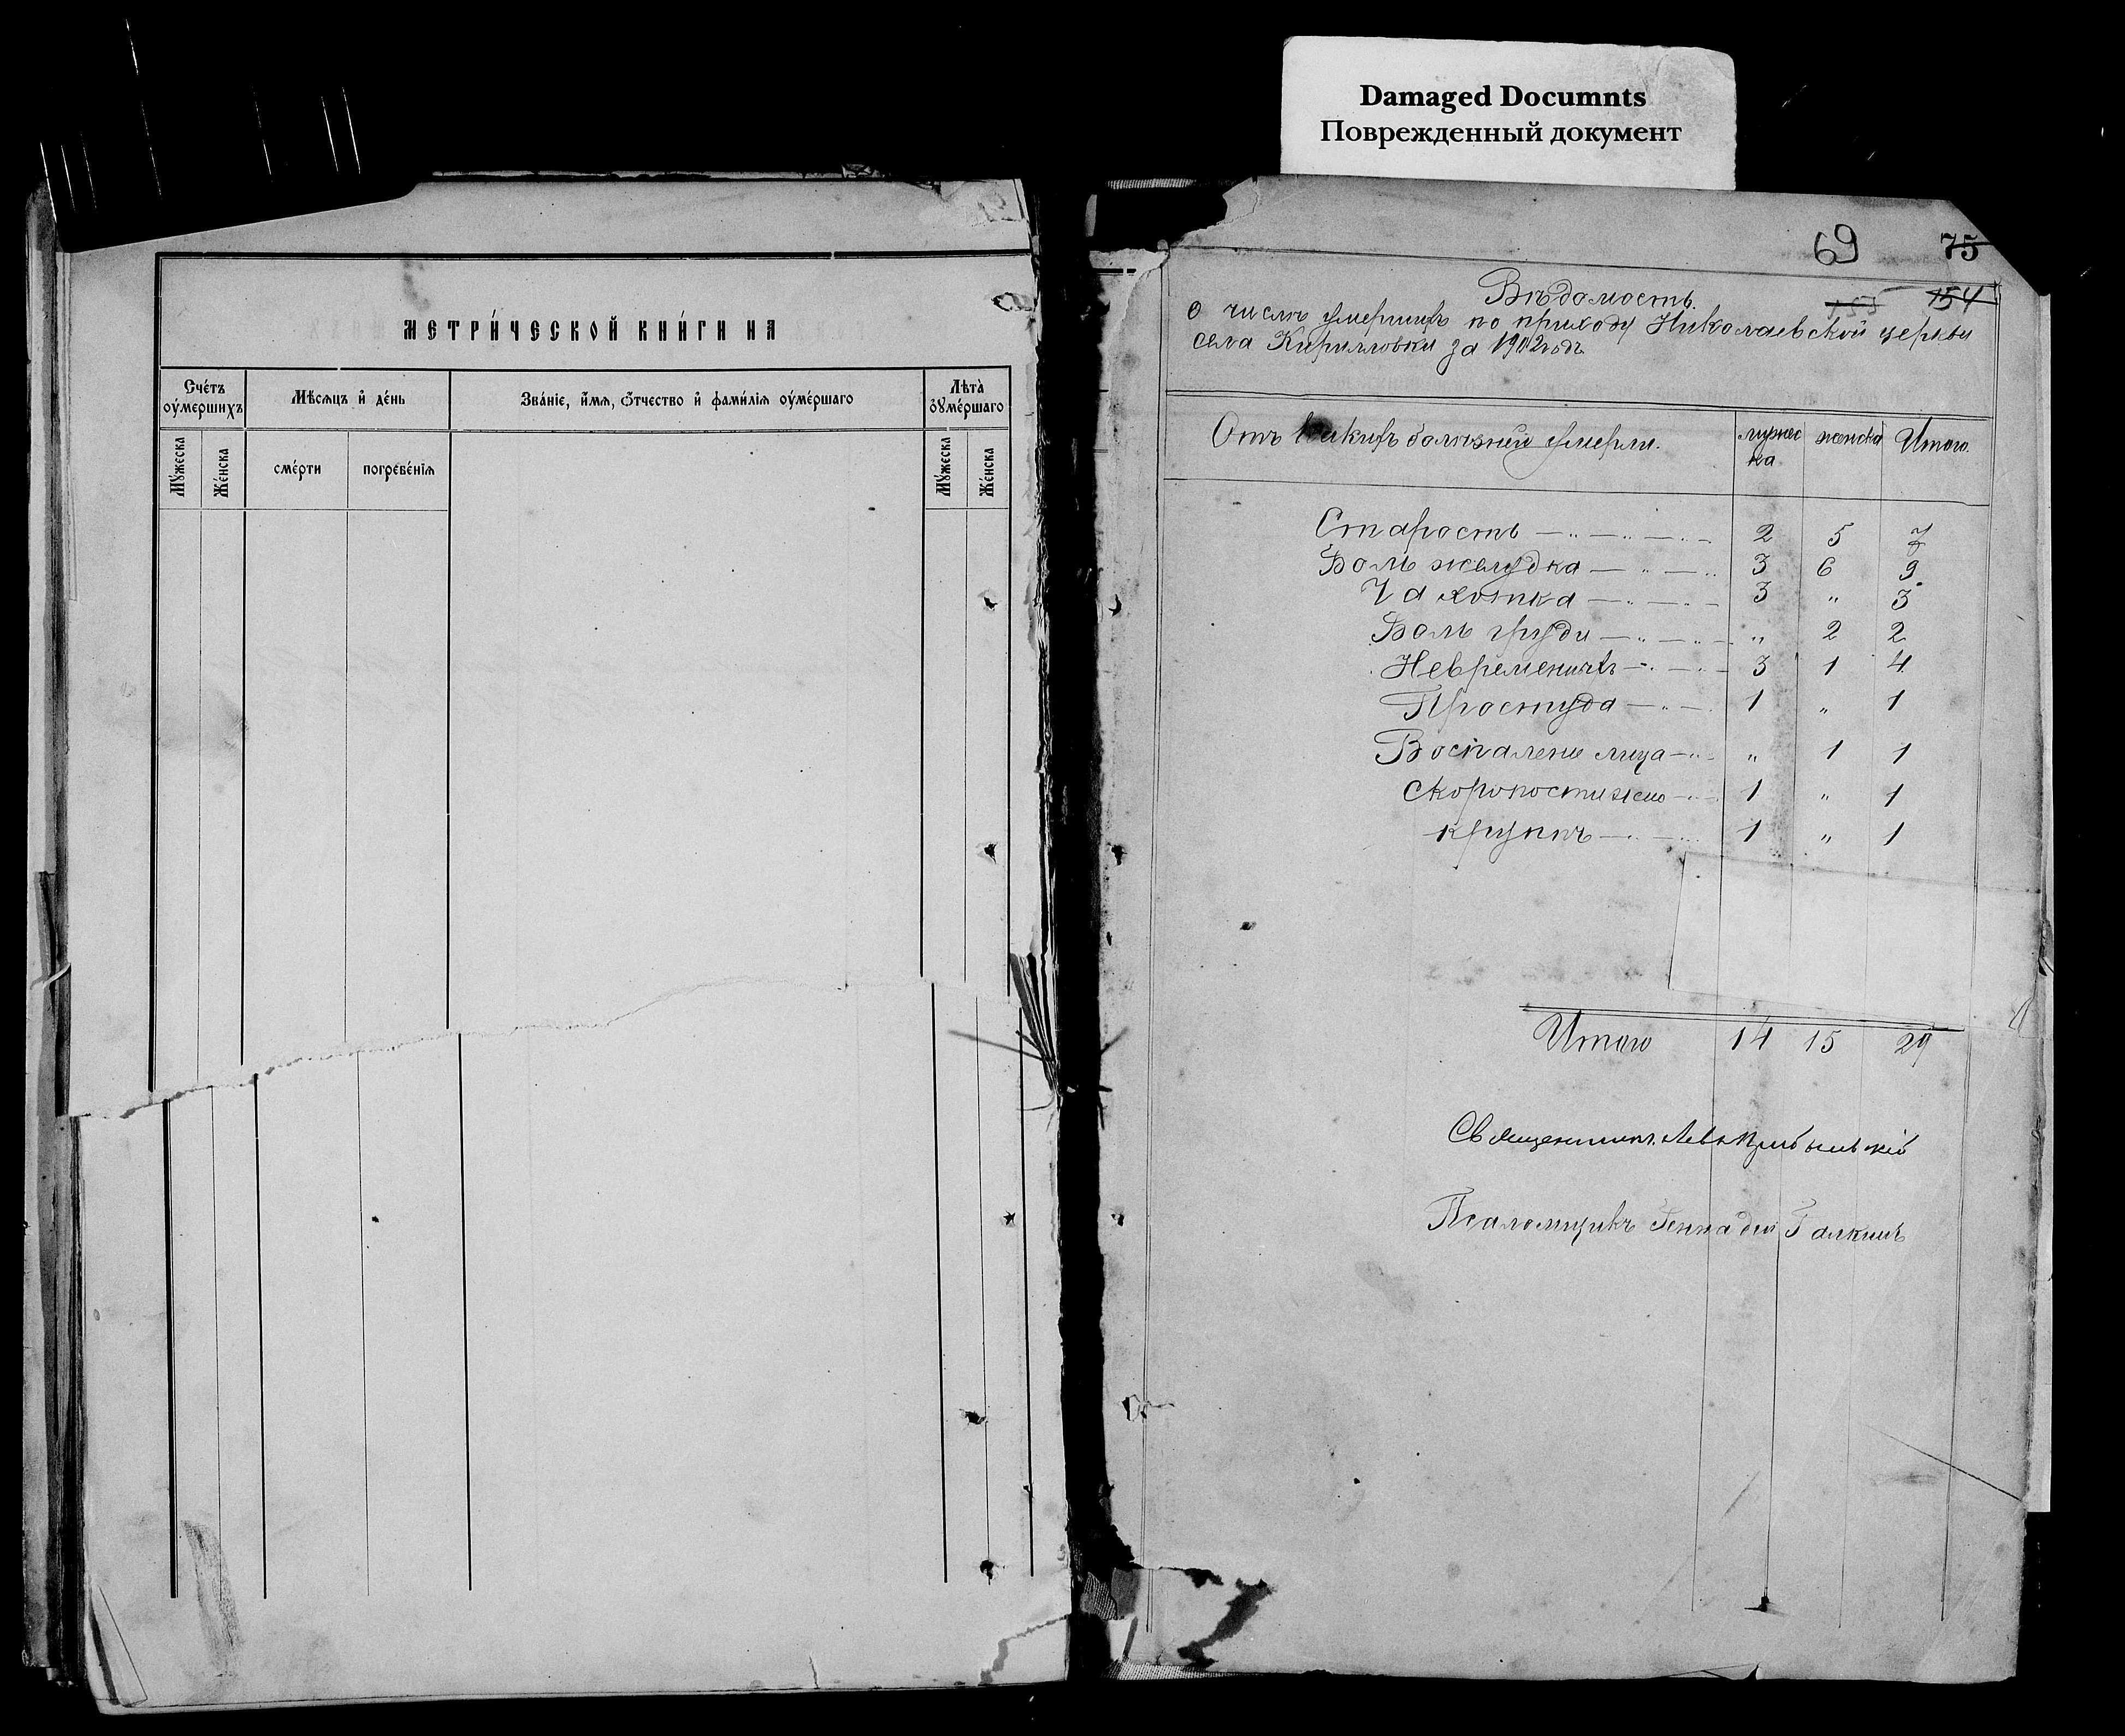 Damaged Documnts
Поврежденный документ
МЕТРИ́ЧЕСКОЙ КНИ́ГИ НА
Сче́тъ оу҆ме́ршихъ
Мѣ́сѧцъ и҆ де́нь
Зва́нїе, и҆́мѧ, ѻ҆́тчество и҆ фами́лїѧ оу҆ме́ршаго
Лѣ́та̀ оу҆ме́ршаго
Мꙋ́жеска
Же́нска
сме́рти
погребе́нїѧ
Мꙋ́жеска
Же́нска
69 75
Вѣдомость. 155 154
о числѣ умершихъ по приходу Николаевской церкви
села Кирилловки за 1902 годъ
Отъ какихъ болѣзней умерли. мужес женска Итого.
ка
Старость — „ — „ — „ — 2 5 7
Боль желудка — „ — „ 3 6 9
Чахотка — „ — „ — 3 „ 3
Боль груди — „ — „ — „ 2 2
Невременнѣ — „ — „ — 3 1 4
Простуда — „ — 1 „ 1
Воспаление лица — „ — „ 1 1
Скоропостижно — „ — 1 „ 1
крупъ — „ — „ 1 „ 1
Итого 14 15 29
Священникъ Левъ
Псаломщикъ Геннадій Галкинъ